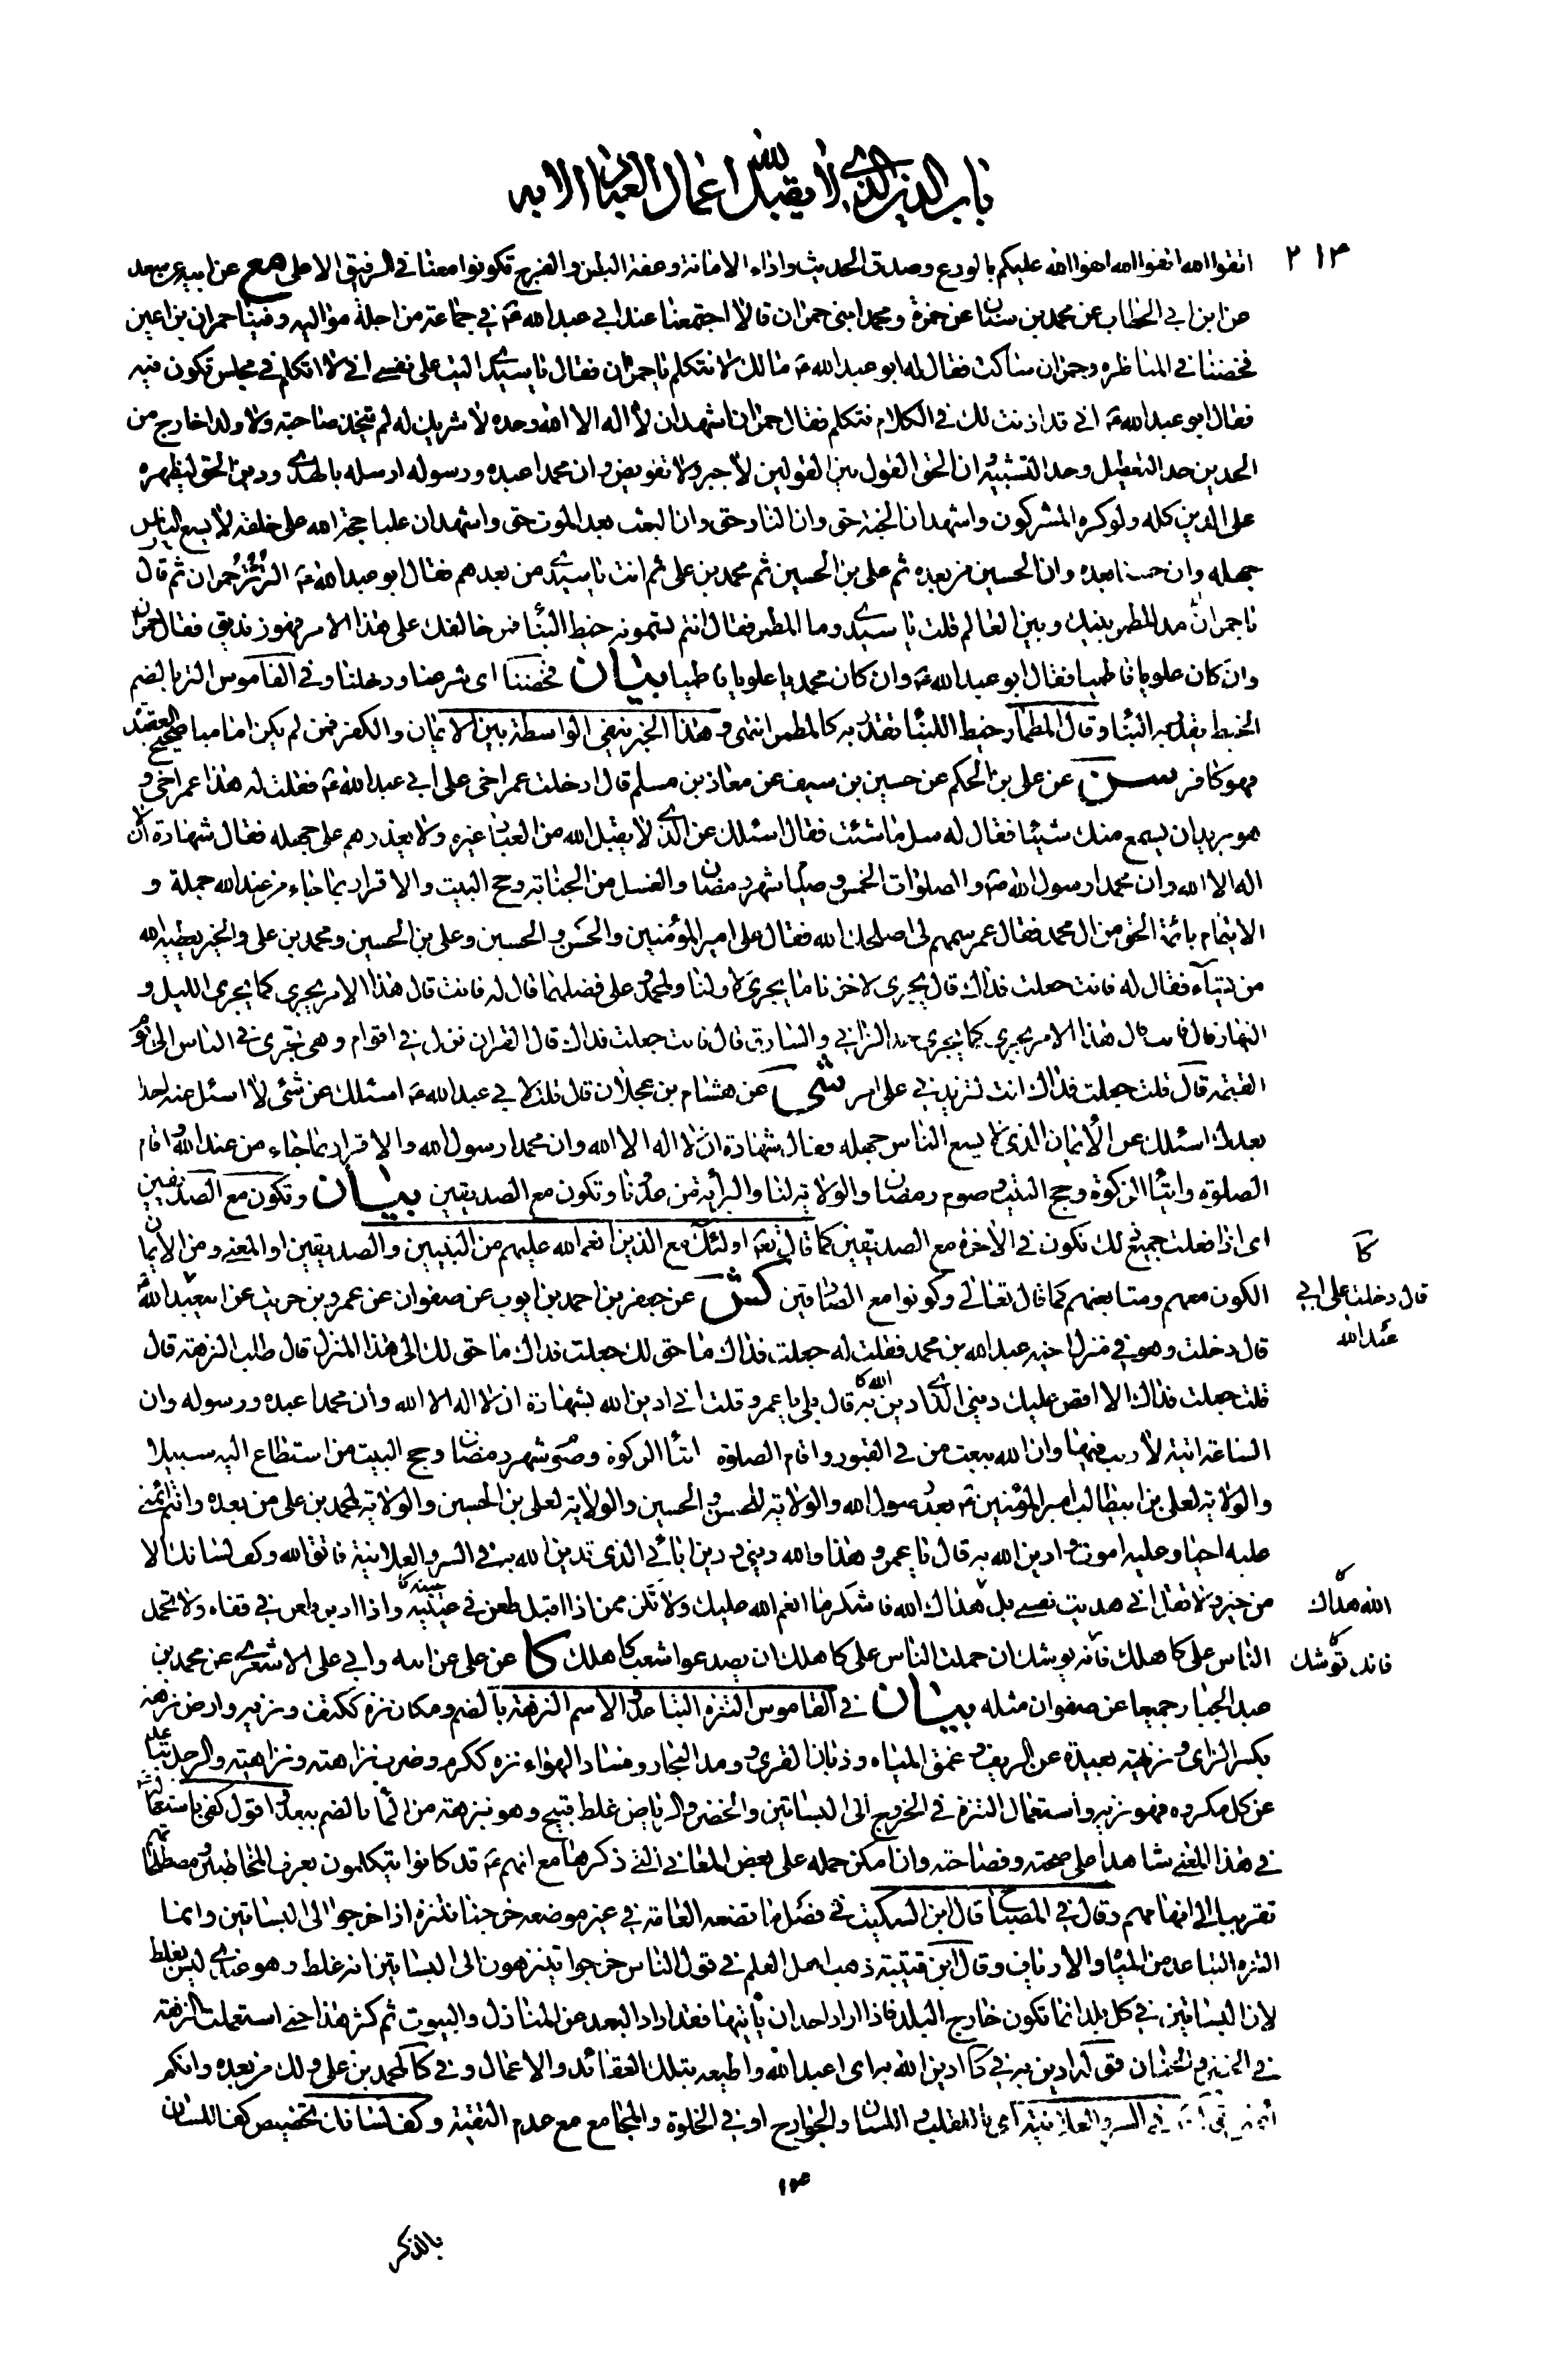 باب الدين الذي لا يقبل الله اعمال العباد الا به
٢١٣
اتقوا الله اتقوا الله اتقوا الله عليكم بالورع وصدق الحديث واداء الامانة وعفة البطن والفرج تكونوا معنا في الرفيق الاعلى مع عن ابيه عن سعد
عن ابن ابي الخطاب عن محمد بن سنان عن حمزة ومحمد ابني حمران قالا اجتمعنا عند ابي عبد الله ع في جماعة من اجلة مواليه وفينا حمران بن اعين
فخضنا في المناظره وحمران ساكت فقال له ابو عبد الله ع مالك لا تتكلم يا حمران فقال يا سيدي اليت على نفسي اني لا اتكلم في مجلس تكون فيه
فقال ابو عبد الله ع اني قد اذنت لك في الكلام فتكلم فقال حمران اشهد ان لا اله الا الله وحده لا شريك له لم يتخذ صاحبة ولا ولدا خارج من
الحدين حد التعطيل وحد التشبيه وان الحق القول بين القولين لا جبر ولا تفويض وان محمدا عبده ورسوله ارسله بالهدى ودين الحق ليظهره
على الدين كله ولو كره المشركون واشهد ان الجنة حق وان النار حق وان البعث بعد الموت حق واشهد ان عليا حجة الله على خلقه لا يسع الناس
جهله وان حسنا بعده وان الحسين من بعده ثم علي بن الحسين ثم محمد بن علي ثم انت يا سيدي من بعدهم فقال ابو عبد الله ع التر تر حمران ثم قال
يا حمران مد المطمر بينك وبين العالم قلت يا سيدي وما المطمر فقال انتم تسمونه خيط البناء فمن خالفك على هذا الامر فهو زنديق فقال حمران
وان كان علويا فاطميا فقال ابو عبد الله ع وان كان محمديا علويا فاطميا بيان فخضنا اي شرعنا ودخلنا وفي القاموس التر بالضم
الخيط يقدر به البناء وقال المطمار خيط للبناء يقدر به كالمطمر انتهى وهذا الخبر ينفي الواسطة بين الايمان والكفر فمن لم يكن اماميا صحيح العقيدة
فهو كافر سن عن علي بن الحكم عن حسين بن سيف عن معاذ بن مسلم قال ادخلت عمر اخي على ابي عبد الله ع فقلت له هذا عمر اخي و
هو يريد ان يسمع منك شيئا فقال له سل ما شئت فقال اسئلك عن الذي لا يقبل الله من العباد غيره ولا يعذرهم على جهله فقال شهادة ان لا
اله الا الله وان محمدا رسول الله ص والصلوات الخمس وصيام شهر رمضان والغسل من الجنابة وحج البيت والاقرار بما جاء من عند الله جملة و
الايتمام بائمة الحق من ال محمد فقال عمر سمهم لي اصلحك الله فقال علي امير المؤمنين والحسن والحسين وعلي بن الحسين ومحمد بن علي والخير يعطيه الله
من يشاء فقال له فانت جعلت فداك قال يجري لاخرنا ما يجري لاولنا ولمحمد وعلي فضلهما قال له فانت قال هذا الامر يجري كما يجري الليل و
النهار قال فانت قال هذا الامر يجري كما يجري حد الزاني والسارق قال فانت جعلت فداك قال القران نزل في اقوام وهي تجري في الناس الى يوم
القيمة قال قلت جعلت فداك انت لتزيدني على امر شى عن هشام بن عجلان قال قلت لابي عبد الله ع اسئلك عن شئ لا اسئل عنه احدا
بعدك اسئلك عن الايمان الذي لا يسع الناس جهله فقال شهادة ان لا اله الا الله وان محمدا رسول الله والاقرار بما جاء من عند الله واقام
الصلوة وايتاء الزكوة وحج البيت وصوم رمضان والولاية لنا والبرائة من عدونا وتكون مع الصديقين بيان وتكون مع الصديقين
اي اذا فعلت جميع ذلك تكون في الاخرة مع الصديقين كما قال تع اولئك مع الذين انعم الله عليهم من النبيين والصديقين او المعنى ومن الايمان
الكون معهم ومتابعتهم كما قال تعالى وكونوا مع الصادقين كش عن جعفر بن احمد بن ايوب عن صفوان عن عمرو بن حريث عن ابي عبد الله ع
قال دخلت وهو في منزل اخيه عبد الله بن محمد فقلت له جعلت فداك ما حولك الى هذا المنزل قال طلب النزهة قال
قلت جعلت فداك الا اقص عليك ديني الذي ادين الله كا به قال بلى يا عمرو قلت اني ادين الله بشهادة ان لا اله الا الله وان محمدا عبده ورسوله وان
الساعة اتية لا ريب فيها وان الله يبعث من في القبور واقام الصلوة ايتاء الزكوة وصوم شهر رمضان وحج البيت من استطاع اليه سبيلا
والولاية لعلي بن ابيطالب امير المؤمنين ع بعد رسول الله والولاية للحسن والحسين والولاية لعلي بن الحسين والولاية لمحمد بن علي من بعده وانتم ائمتي
عليه احيا وعليه اموت وادين الله به قال يا عمرو هذا والله ديني ودين ابائي الذي ندين الله به في السر والعلانية فاتق الله وكف لسانك الا
من خير ولا تقل اني هديت نفسي بل هداك الله فاشكر ما انعم الله عليك ولا تكن ممن اذا اقبل طعن في عينيه واذا ادبر طعن في قفاه ولا تحمل
الناس على كاهلك فانه يوشك ان حملت الناس على كاهلك ان يصدعوا شعب كاهلك كا عن علي عن ابيه وابي علي الاشعري عن محمد بن
عبد الجبار جميعا عن صفوان مثله بيان في القاموس التنزه التباعد والاسم النزهة بالضم ومكان نزه ككتف ونزيه وارض نزهة
بكسر الزاي ونزيهة بعيدة عن الريف وغمق المياه وذبان القرى وومد البحار وفساد الهواء نزه ككرم وضرب نزاهة ونزاهية والرجل تباعد
عن كل مكروه فهو نزيه واستعمال التنزه في الخروج الى البساتين والخضر والرياض غلط قبيح وهو بنزهة من الماء بالضم ببعد اقول كفى باستعماله ع
في هذا المعنى شاهدا على صحته وفصاحته وان امكن حمله على بعض المعاني التي ذكرها مع انهم ع قد كانوا يتكلمون بعرف المخاطبين ومصطلحاتهم
تقريبا الى افهامهم وقال في المصباح قال ابن السكيت في فصل ما تضعه العامة في غير موضعه خرجنا نتنزه اذا خرجوا الى البساتين وانما
التنزه التباعد من المياه والارياف وقال ابن قتيبة ذهب اهل العلم في قول الناس خرجوا يتنزهون الى البساتين انه غلط وهو عندي ليس بغلط
لان البساتين في كل بلد انما تكون خارج البلد فاذا اراد احد ان ياتيها فقد اراد البعد عن المنازل والبيوت ثم كثر هذا حتى استعملت النزهة
في الخضر والجنان قوله ادين به في كا ادين الله به اي اعبد الله واطيعه بتلك العقائد والاعمال وفي كا لمحمد بن علي ولك من بعده وانكم
ائمتي في السر والعلانية اي بالقلب واللسان والجوارح او في الخلوة والمجامع مع عدم التقية وكف لسانك تخصيص كف اللسان
كا
قال دخلت على ابي
عبد الله
كا
الله هداك
كا
فانك توشك
١٣
بالذكر